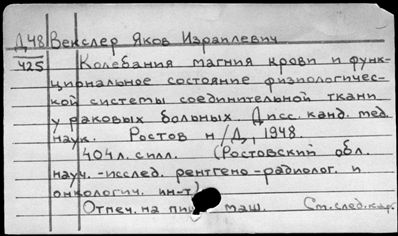 Д48 Векслер Яков Израилевич
425 Колебания магния крови и функ-
циональное состояние физиологичес-
кой системы соединительной ткани
у раковых больных. Дисс. канд. мед.
наук. Ростов н/Д, 1948.
404л. силл. (Ростовский обл.
науч.-исслед. рентгено-радиолог. и
онкологич. ин-т)
Отпеч. на пиш. маш. См.след.кар.